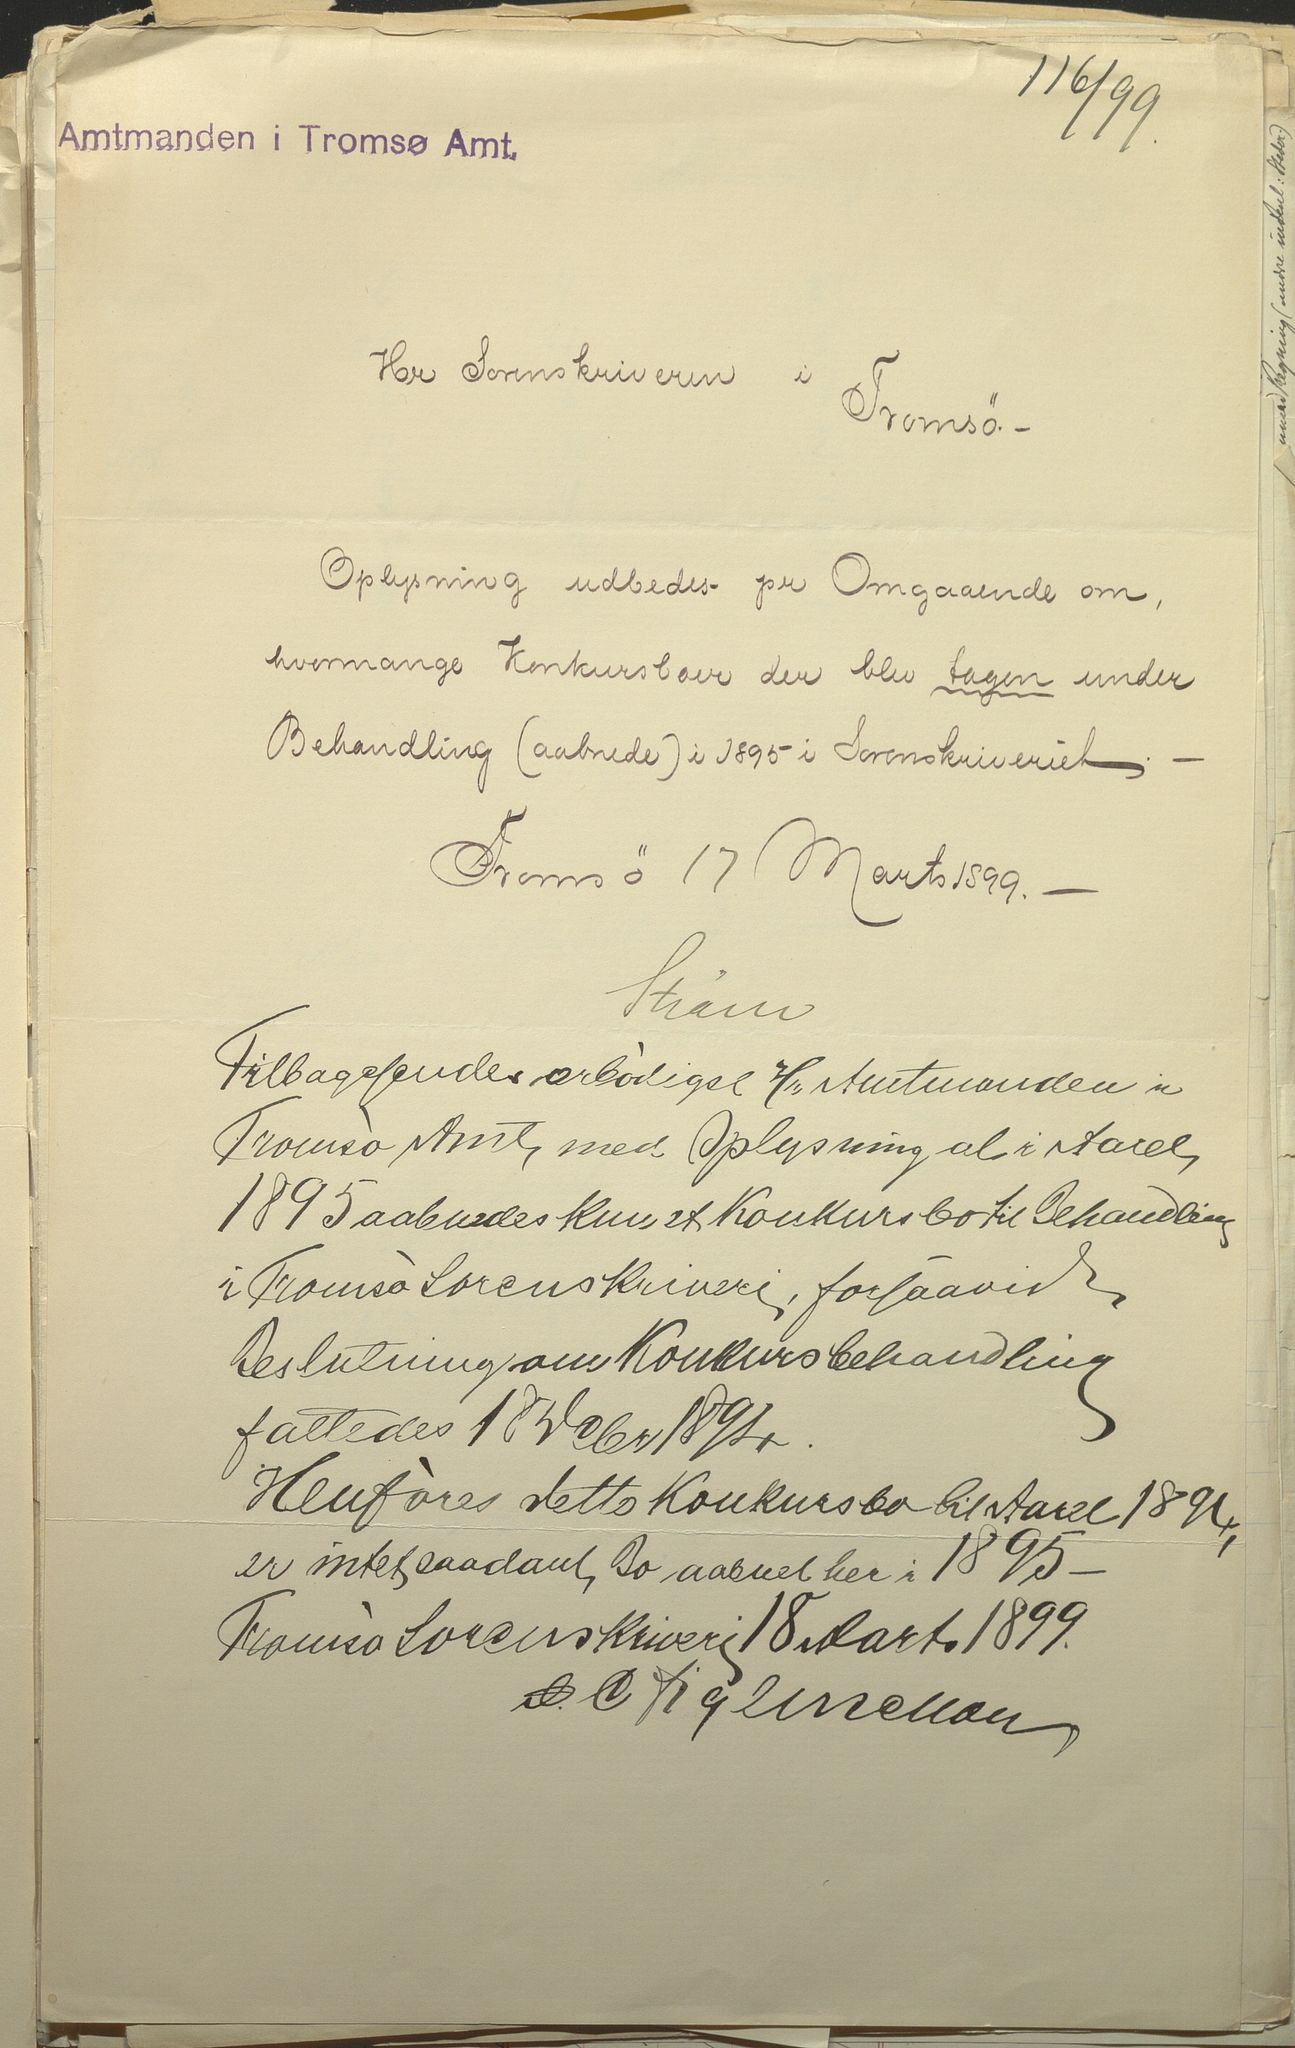 116/99.
Amtmanden i Tromsø Amt.
Hr Sorenskriveren i
Tromsö. –
Oplysning udbedes pr Omgaaende om,
hvormange Konkursboer der blev tagen under
Behandling (aabnede) i 1895 i Sorenskriveriet. –
Tromsö 17 Marts 1899. –
Ström
Tilbagesendes ærbödigst Hr Amtmanden i
Tromsö Amt, med Oplysning at i Aaret
1895 aabnedes kun et Konkursbo til Behandling
i Tromsö Sorenskriveri, forsaavidt
Beslutning om Konkursbehandling
fattedes 18 Dcbr 1894.
Henföres dette Konkursbo til Aaret 1894,
er intet saadant Bo aabnet her i 1895 –
Tromsö Sorenskriveri 18 Marts 1899.